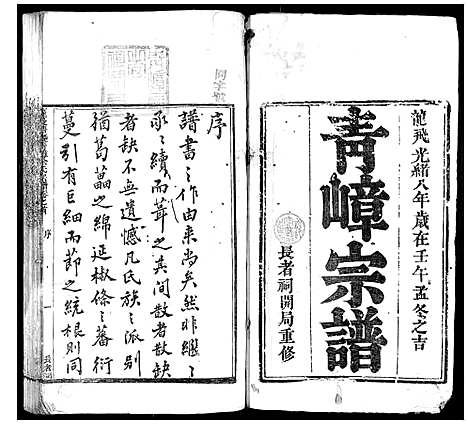 龍飛光緒八年歲在壬午孟冬之吉
青嶂宗譜
長者祠開局重修
序
譜書之作由来尚矣然非繼〻
承〻續而葺之其間散者散缺
者缺不無遺憾凡氏族〻派别
猶葛藟之綿延椒條〻蕃衍
蔓引有巨細而莭之統根則同
序
一